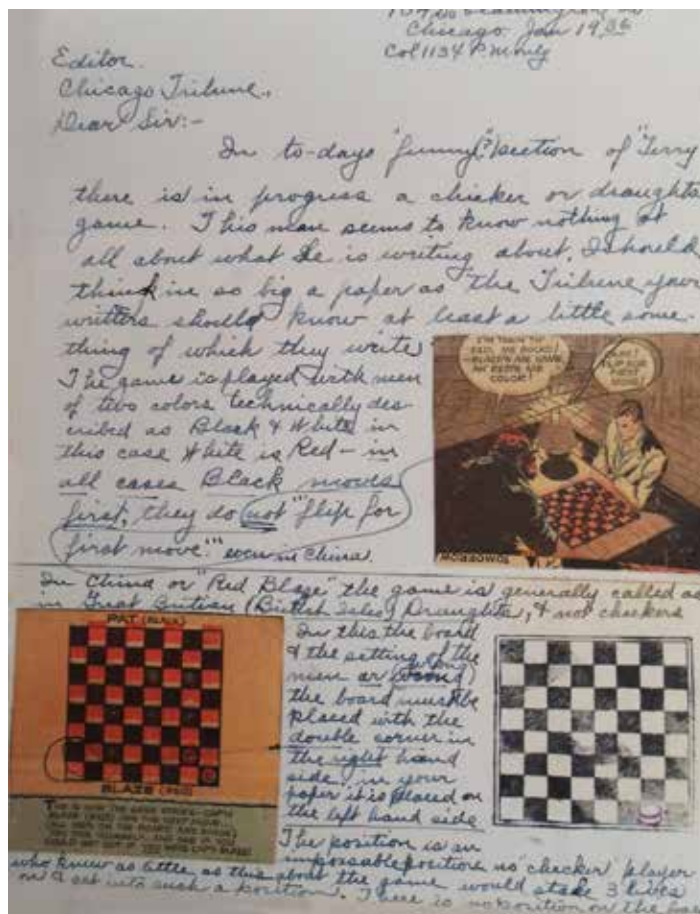 Chicago Jan 19,36
Editor
Chicago Tribune,
Dear Sir:-
In to-days "funny" Section of "Terry
there is in progress a chicker or draughts
game. This man seems to know nothing at
all about what he is writing about. I should
think in so big a paper as the Tribune your
writers should know at least a little some-
thing of which they write
The game is played with men
of two colors technically des-
cribed as Black & White in
this case White is Red - in
all cases Black moves
first, they do not "flip for
first move." even in China.
FIRST MOVE!
In China or "Red Blaze" the game is generally called as
in Great Britian (British Isles) Draughts, & not checkers
PAT (BLACK)
BLAZE (RED)
In this the board
& the setting of the
men ar wrong
the board must be
placed with the
double corner in
the right hand
side, in your
paper it is placed on
the left hand side
The position is an
impossable position no checker player
who knew as little as this about the game would stake 3 lives
on & get into such a position. There is no position on the